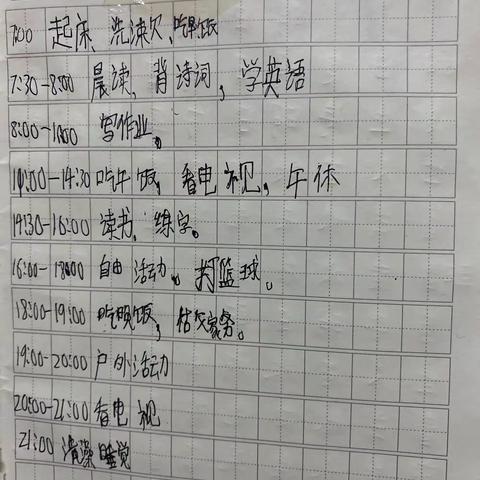 7:00 起床、洗漱欠、吃早饭
7:30-8:00 晨读、背诗词，学英语
8:00-10:00 写作业。
10:00-14:30 吃午饭，看电视，午休
14:30-16:00 读书、练字。
16:00-18:00 自由活动。打篮球。
18:00-19:00 吃晚饭，做家务。
19:00-20:00 户外活动
20:00-21:00 看电视
21:00 清澡睡觉